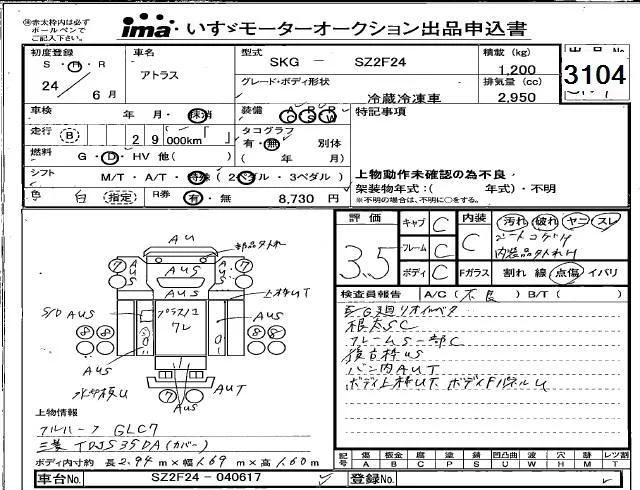 ㊟赤太枠内は必ず
ボールペンで
ご記入下さい。
ima いすゞモーターオークション出品申込書
初度登録
S・H・R
24
6 月
車名
アトラス
型式
SKG － SZ2F24
グレード・ボディ形状
冷蔵冷凍車
積載 (kg)
1,200
排気量 (cc)
2,950
出品No.
3104
車検
年 月・抹消
装備 A C P S P W
特記事項
走行 B
29 000km
タコグラフ
有・無 別体
( 年 月)
燃料
G・D・HV 他( )
シフト
M/T・A/T・特殊( 2ペダル・3ペダル )
上物動作未確認の為不良
架装物年式:( 年式)・不明
※不明の場合は、不明に○をする。
色 白 (指定)
R券 有・無 8,730 円
評価
3.5
キャブ C
フレーム C
ボディ C
内装 C
汚れ 破れ ヤニ スレ
シートコゲ
内装品ハズレ
Fガラス 割れ 線 点傷 イバリ
検査員報告 A/C( 不良 ) B/T( )
E/G廻リオイルベタ
根太SC
フレームS一部C
後台枠US
バン内AUT
ボディ上枠UT ボディFパネルU
AU
AUS
AUS
上枠UT
S/D AUS
AUS
7
7
8
8
8
8
7
7
AUS
AUT
上物情報
フルハーフ GLC7
三菱 TDJS35DA (カバー)
ボディ内寸約 長 2.94 m×幅 1.69 m×高 1.60 m
記号 傷 A 板金 B 腐 C 塗 P 錆 S 凹凸曲 U 波 W 穴 H 跡 M レツ割 T
車台No. SZ2F24-040617
登録No.